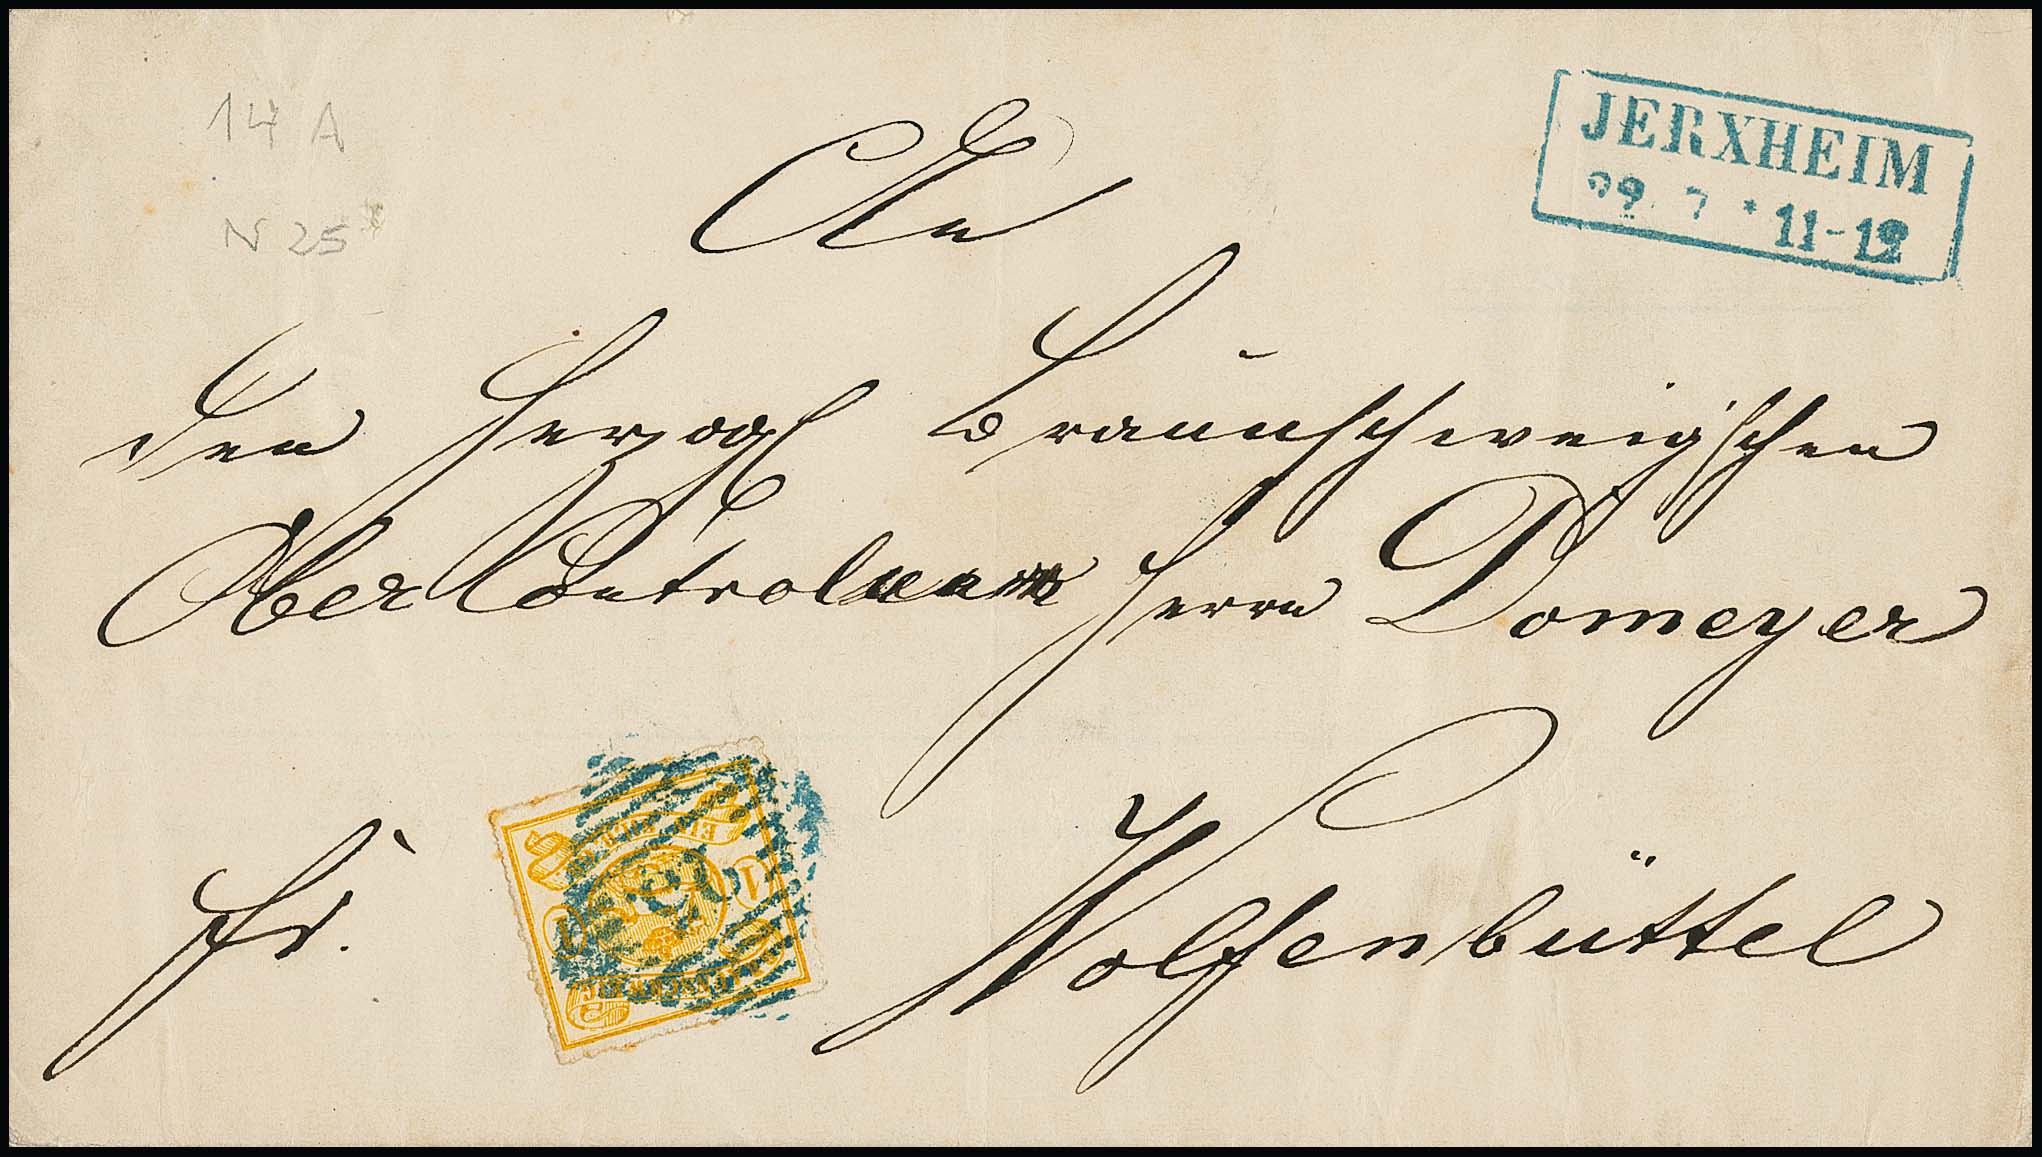 14 A
N 25
JERXHEIM
29. 7 * 11-12
An
den Herzogl Braunschweigschen
Ober Controleur Herrn Domeyer
fr.
Wolfenbüttel
1
1